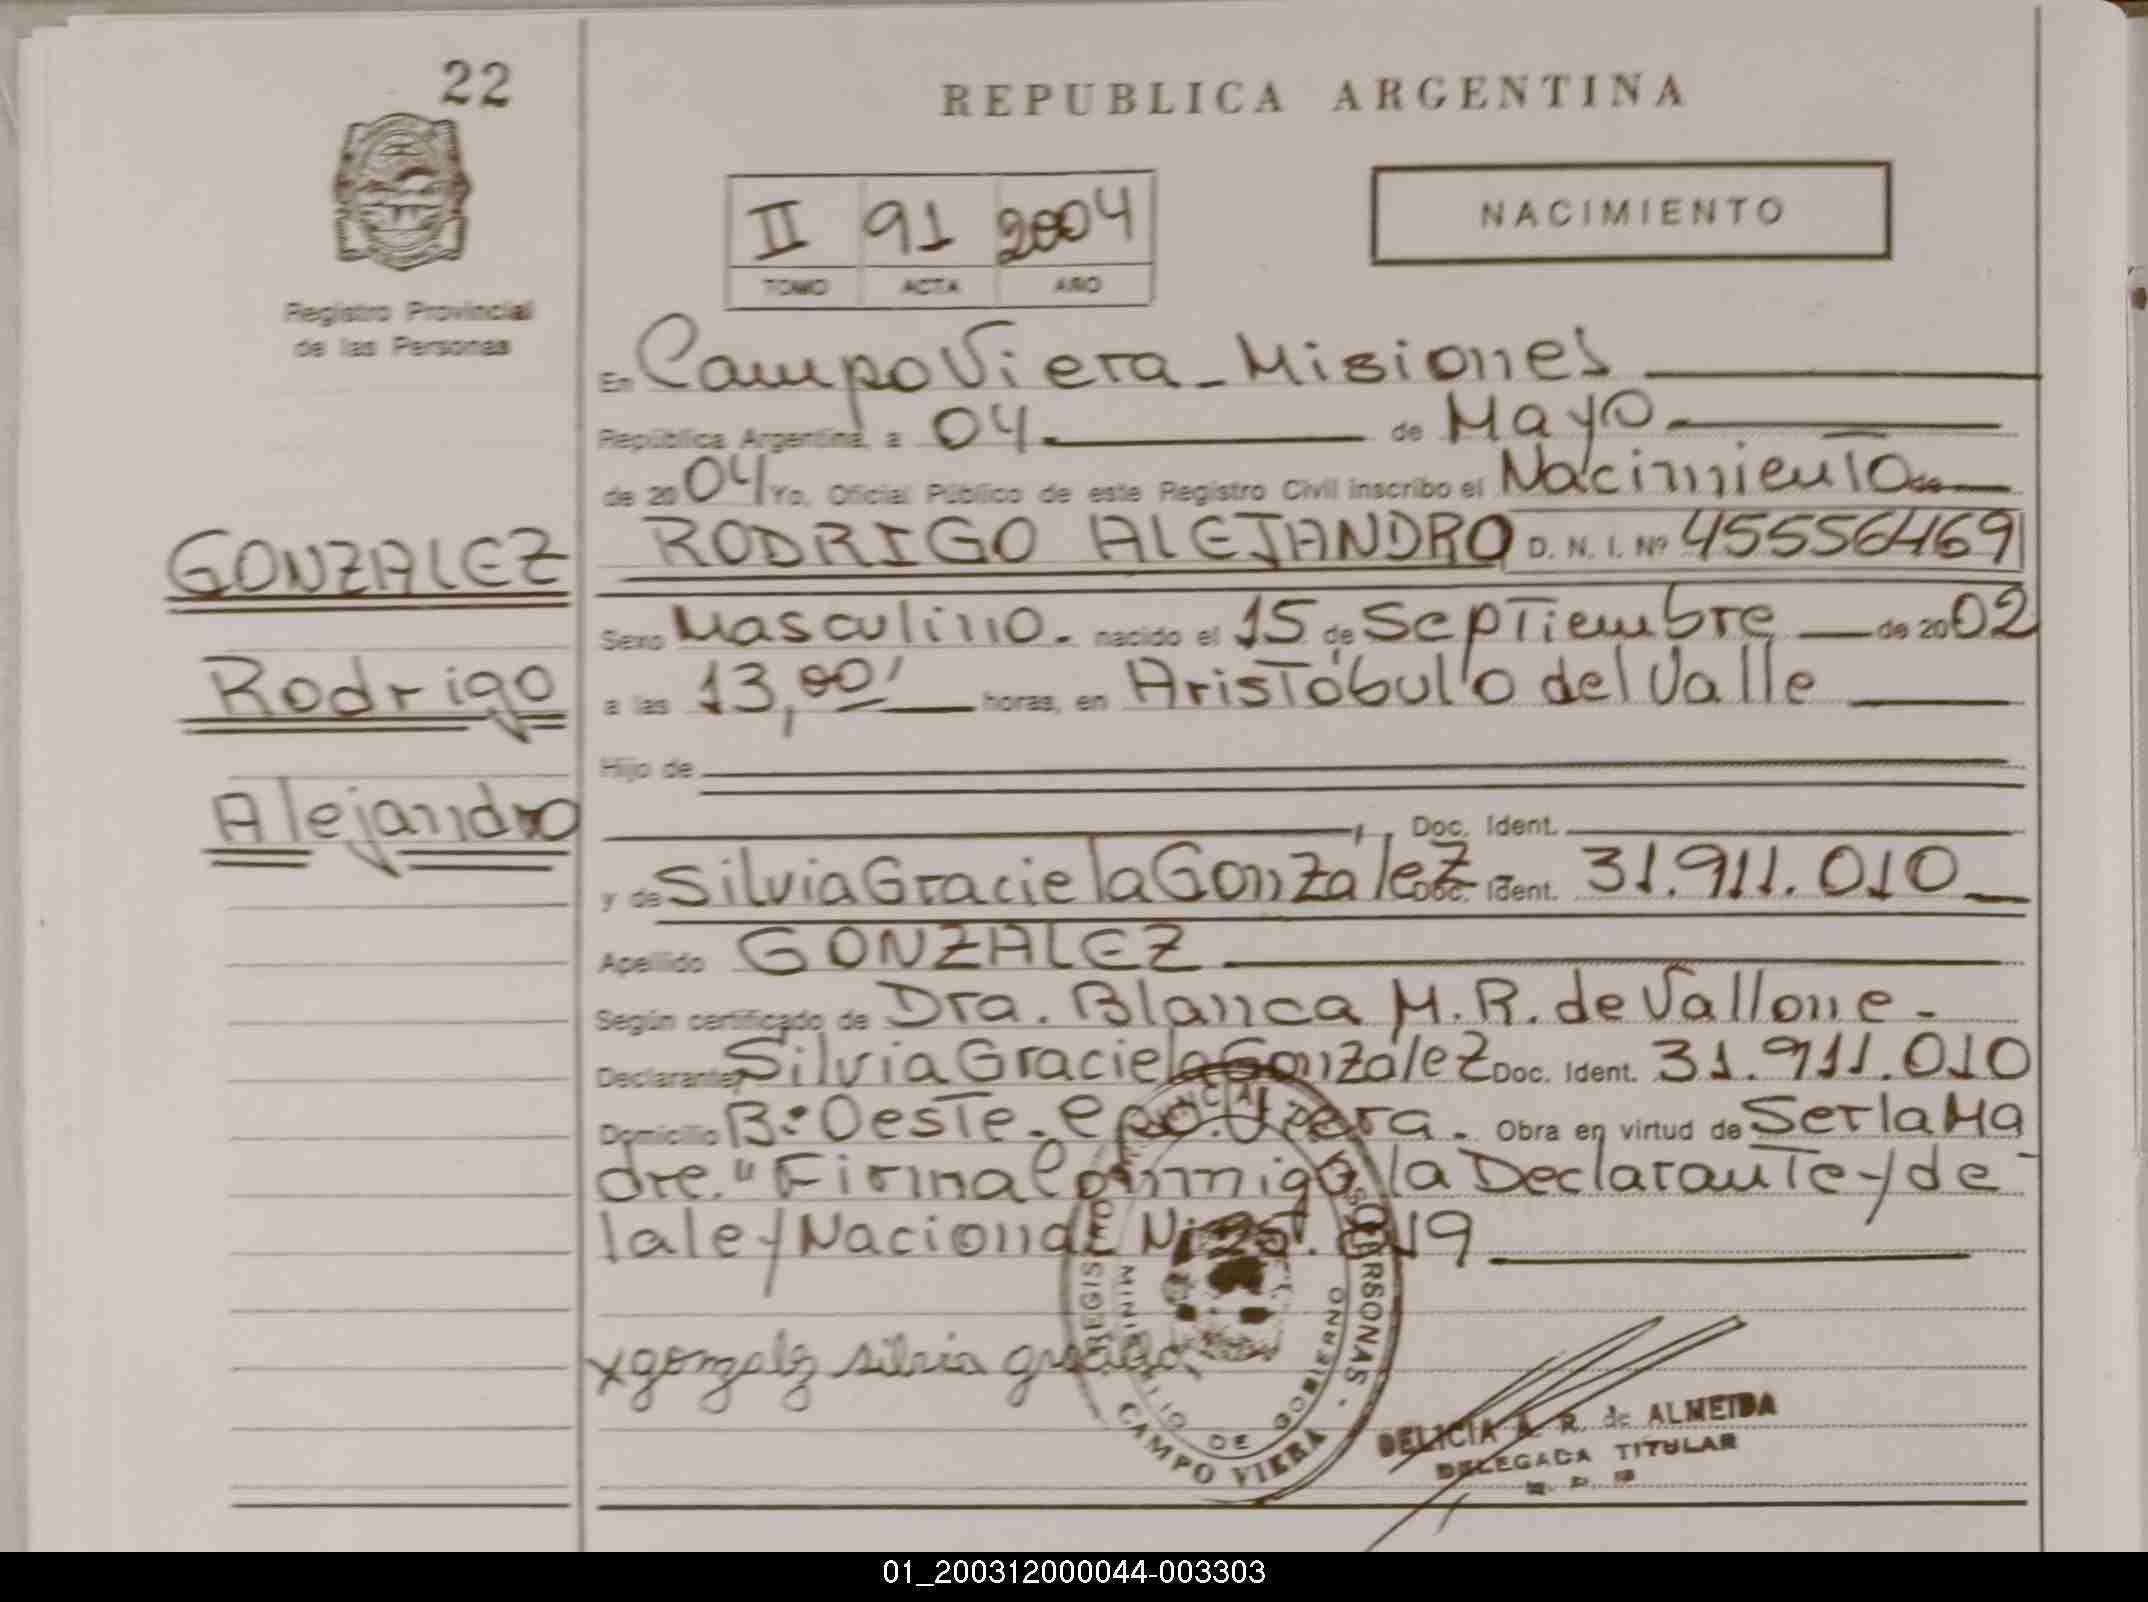 22
REPUBLICA ARGENTINA
NACIMIENTO
II 91 2004
TOMO ACTA AÑO
Registro Provincial
de las Personas
En Campo Viera - Misiones
República Argentina, a 04 de Mayo
de 2004 Yo, Oficial Público de este Registro Civil inscribo el Nacimiento de
GONZALEZ
Rodrigo
Alejandro
RODRIGO ALEJANDRO D. N. I. Nº 45556469
Sexo Masculino. nacido el 15 de Septiembre de 2002
a las 13,00' horas, en Aristóbulo del Valle
Hijo de
, Doc. Ident.
y de Silvia Graciela González Doc. Ident. 31.911.010
Apellido GONZALEZ
Según certificado de Dra. Blanca M. R. de Vallone -
Declarante, Silvia Graciela González Doc. Ident. 31.911.010
Domicilio Bº Oeste - Cpo. Viera. Obra en virtud de Ser la Ma
dre. "Firma Conmigo la Declarante y de
la ley Nacional Nº 25. 819
x gonzalz silvia graciela
REGIS PERSONAS - MINISTERIO DE GOBIERNO
CAMPO VIERA
DELICIA A. R. de ALMEIDA
DELEGADA TITULAR
01_200312000044-003303